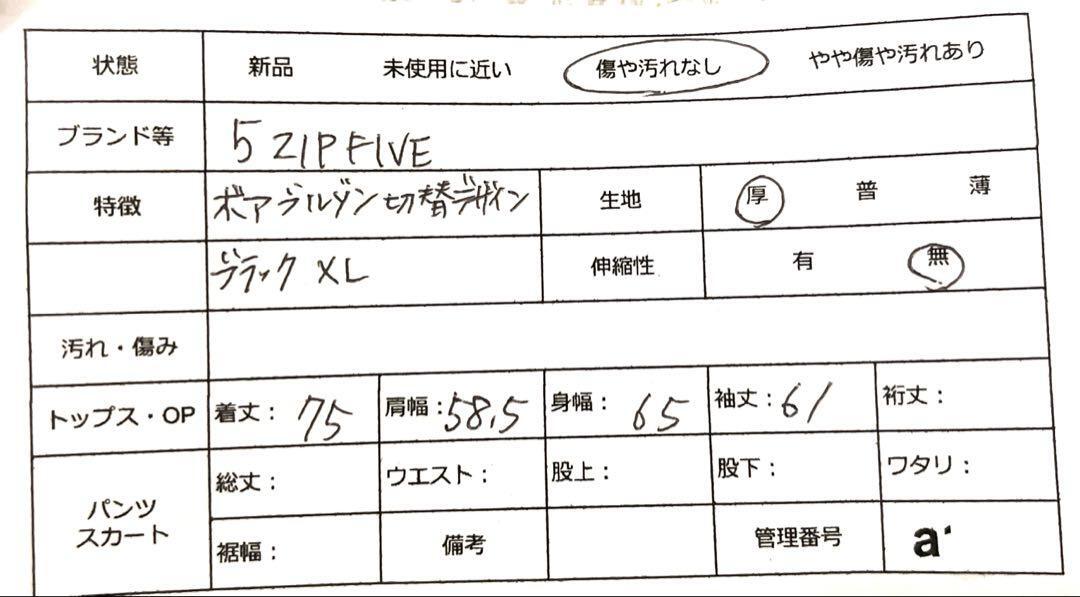 状態 新品 未使用に近い 傷や汚れなし やや傷や汚れあり
ブランド等 5 ZIP FIVE
特徴 ボアブルゾン 切替デザイン 生地 厚 普 薄
ブラック XL 伸縮性 有 無
汚れ・傷み
トップス・OP 着丈: 75 肩幅: 58.5 身幅: 65 袖丈: 61 裄丈:
パンツ
スカート
総丈: ウエスト: 股上: 股下: ワタリ:
裾幅: 備考 管理番号 a